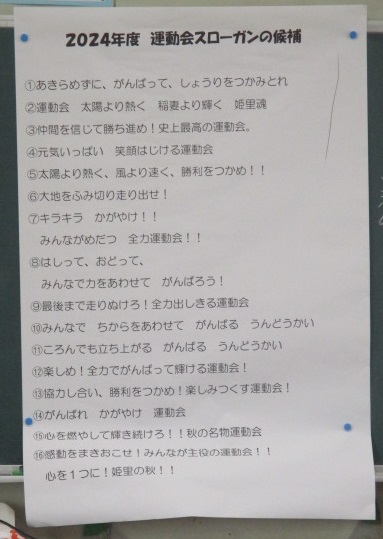 2024年度　運動会スローガンの候補
①あきらめずに、がんばって、しょうりをつかみとれ
②運動会　太陽より熱く　稲妻より輝く　姫里魂
③仲間を信じて勝ち進め！史上最高の運動会。
④元気いっぱい　笑顔はじける運動会
⑤太陽より熱く、風より速く、勝利をつかめ！！
⑥大地をふみ切り走り出せ！
⑦キラキラ　かがやけ！！
みんながめだつ　全力運動会！！
⑧はしって、おどって、
みんなで力をあわせて　がんばろう！
⑨最後まで走りぬけろ！全力出しきる運動会
⑩みんなで　ちからをあわせて　がんばる　うんどうかい
⑪ころんでも立ち上がる　がんばる　うんどうかい
⑫楽しめ！全力でがんばって輝ける運動会！
⑬協力し合い、勝利をつかめ！楽しみつくす運動会！
⑭がんばれ　かがやけ　運動会
⑮心を燃やして輝き続けろ！！秋の名物運動会
⑯感動をまきおこせ！みんなが主役の運動会！！
心を１つに！姫里の秋！！